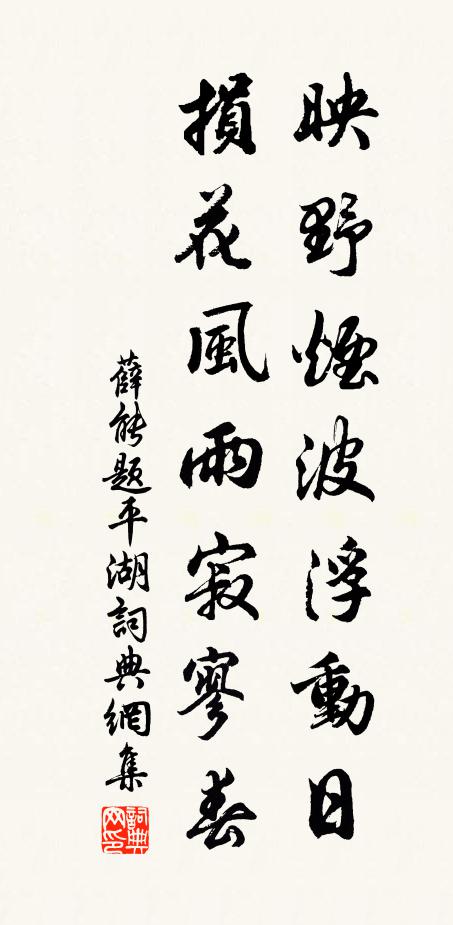 映野煙波浮動日
損花風雨寂寥春
薛能題平湖詞典網集
詞典網印